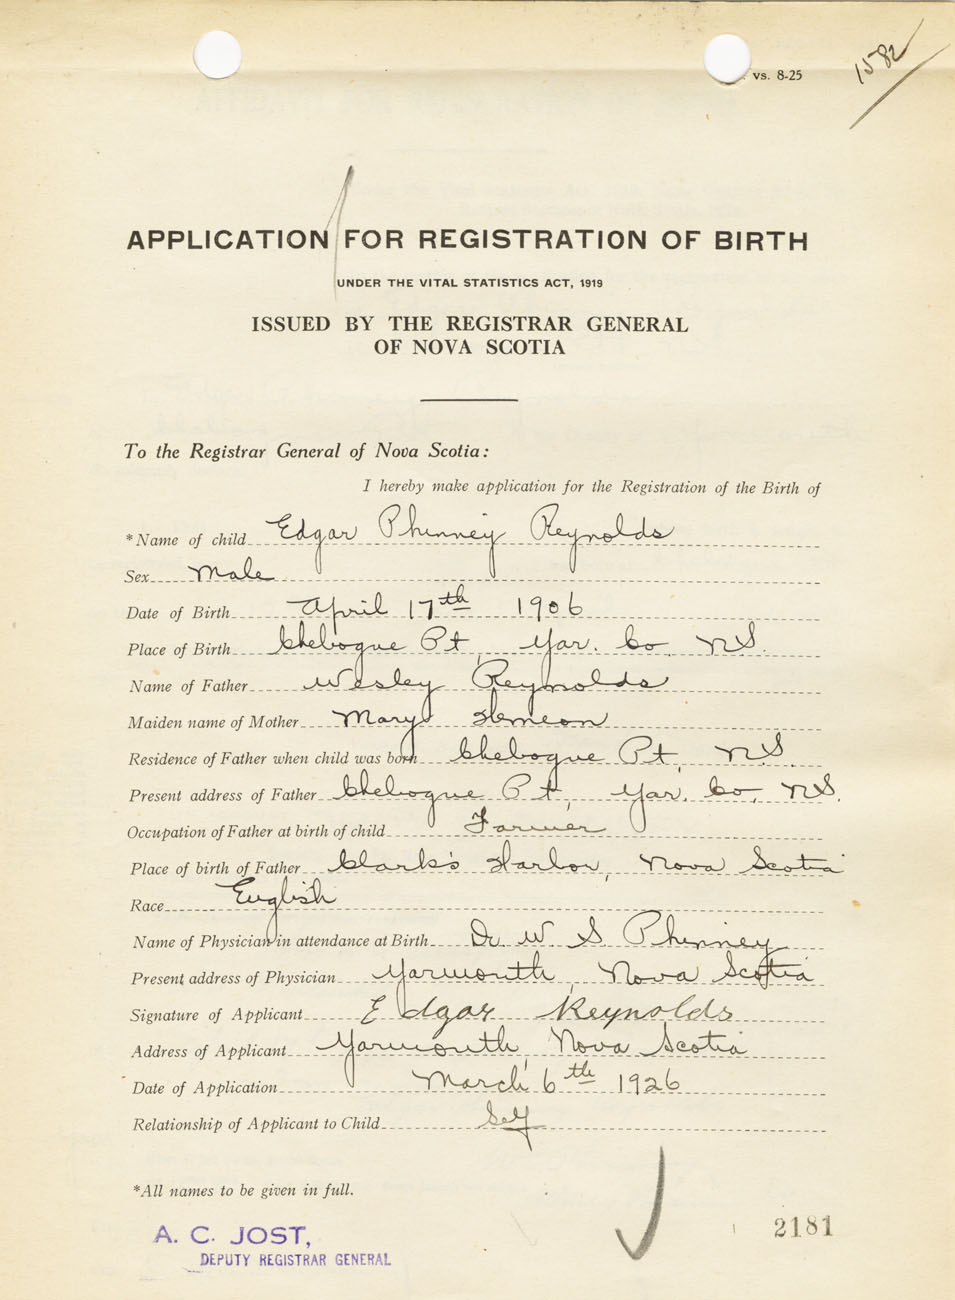 vs. 8-25
1582
APPLICATION FOR REGISTRATION OF BIRTH
UNDER THE VITAL STATISTICS ACT, 1919
ISSUED BY THE REGISTRAR GENERAL
OF NOVA SCOTIA
To the Registrar General of Nova Scotia:
I hereby make application for the Registration of the Birth of
*Name of child Edgar Phinney Reynolds
Sex Male
Date of Birth April 17th 1906
Place of Birth Chebogue Pt, Yar. Co. N.S.
Name of Father Wesley Reynolds
Maiden name of Mother Mary Hemeon
Residence of Father when child was born Chebogue Pt, N.S.
Present address of Father Chebogue Pt, Yar. Co, N.S.
Occupation of Father at birth of child Farmer
Place of birth of Father Clark's Harbor, Nova Scotia
Race English
Name of Physician in attendance at Birth Dr. W. S. Phinney
Present address of Physician Yarmouth, Nova Scotia
Signature of Applicant Edgar Reynolds
Address of Applicant Yarmouth, Nova Scotia
Date of Application March 6th 1926
Relationship of Applicant to Child Self
*All names to be given in full.
A. C. JOST,
DEPUTY REGISTRAR GENERAL
2181